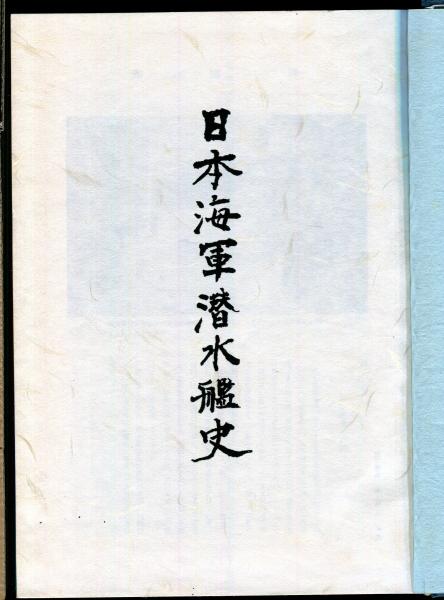 日本海軍潜水艦史